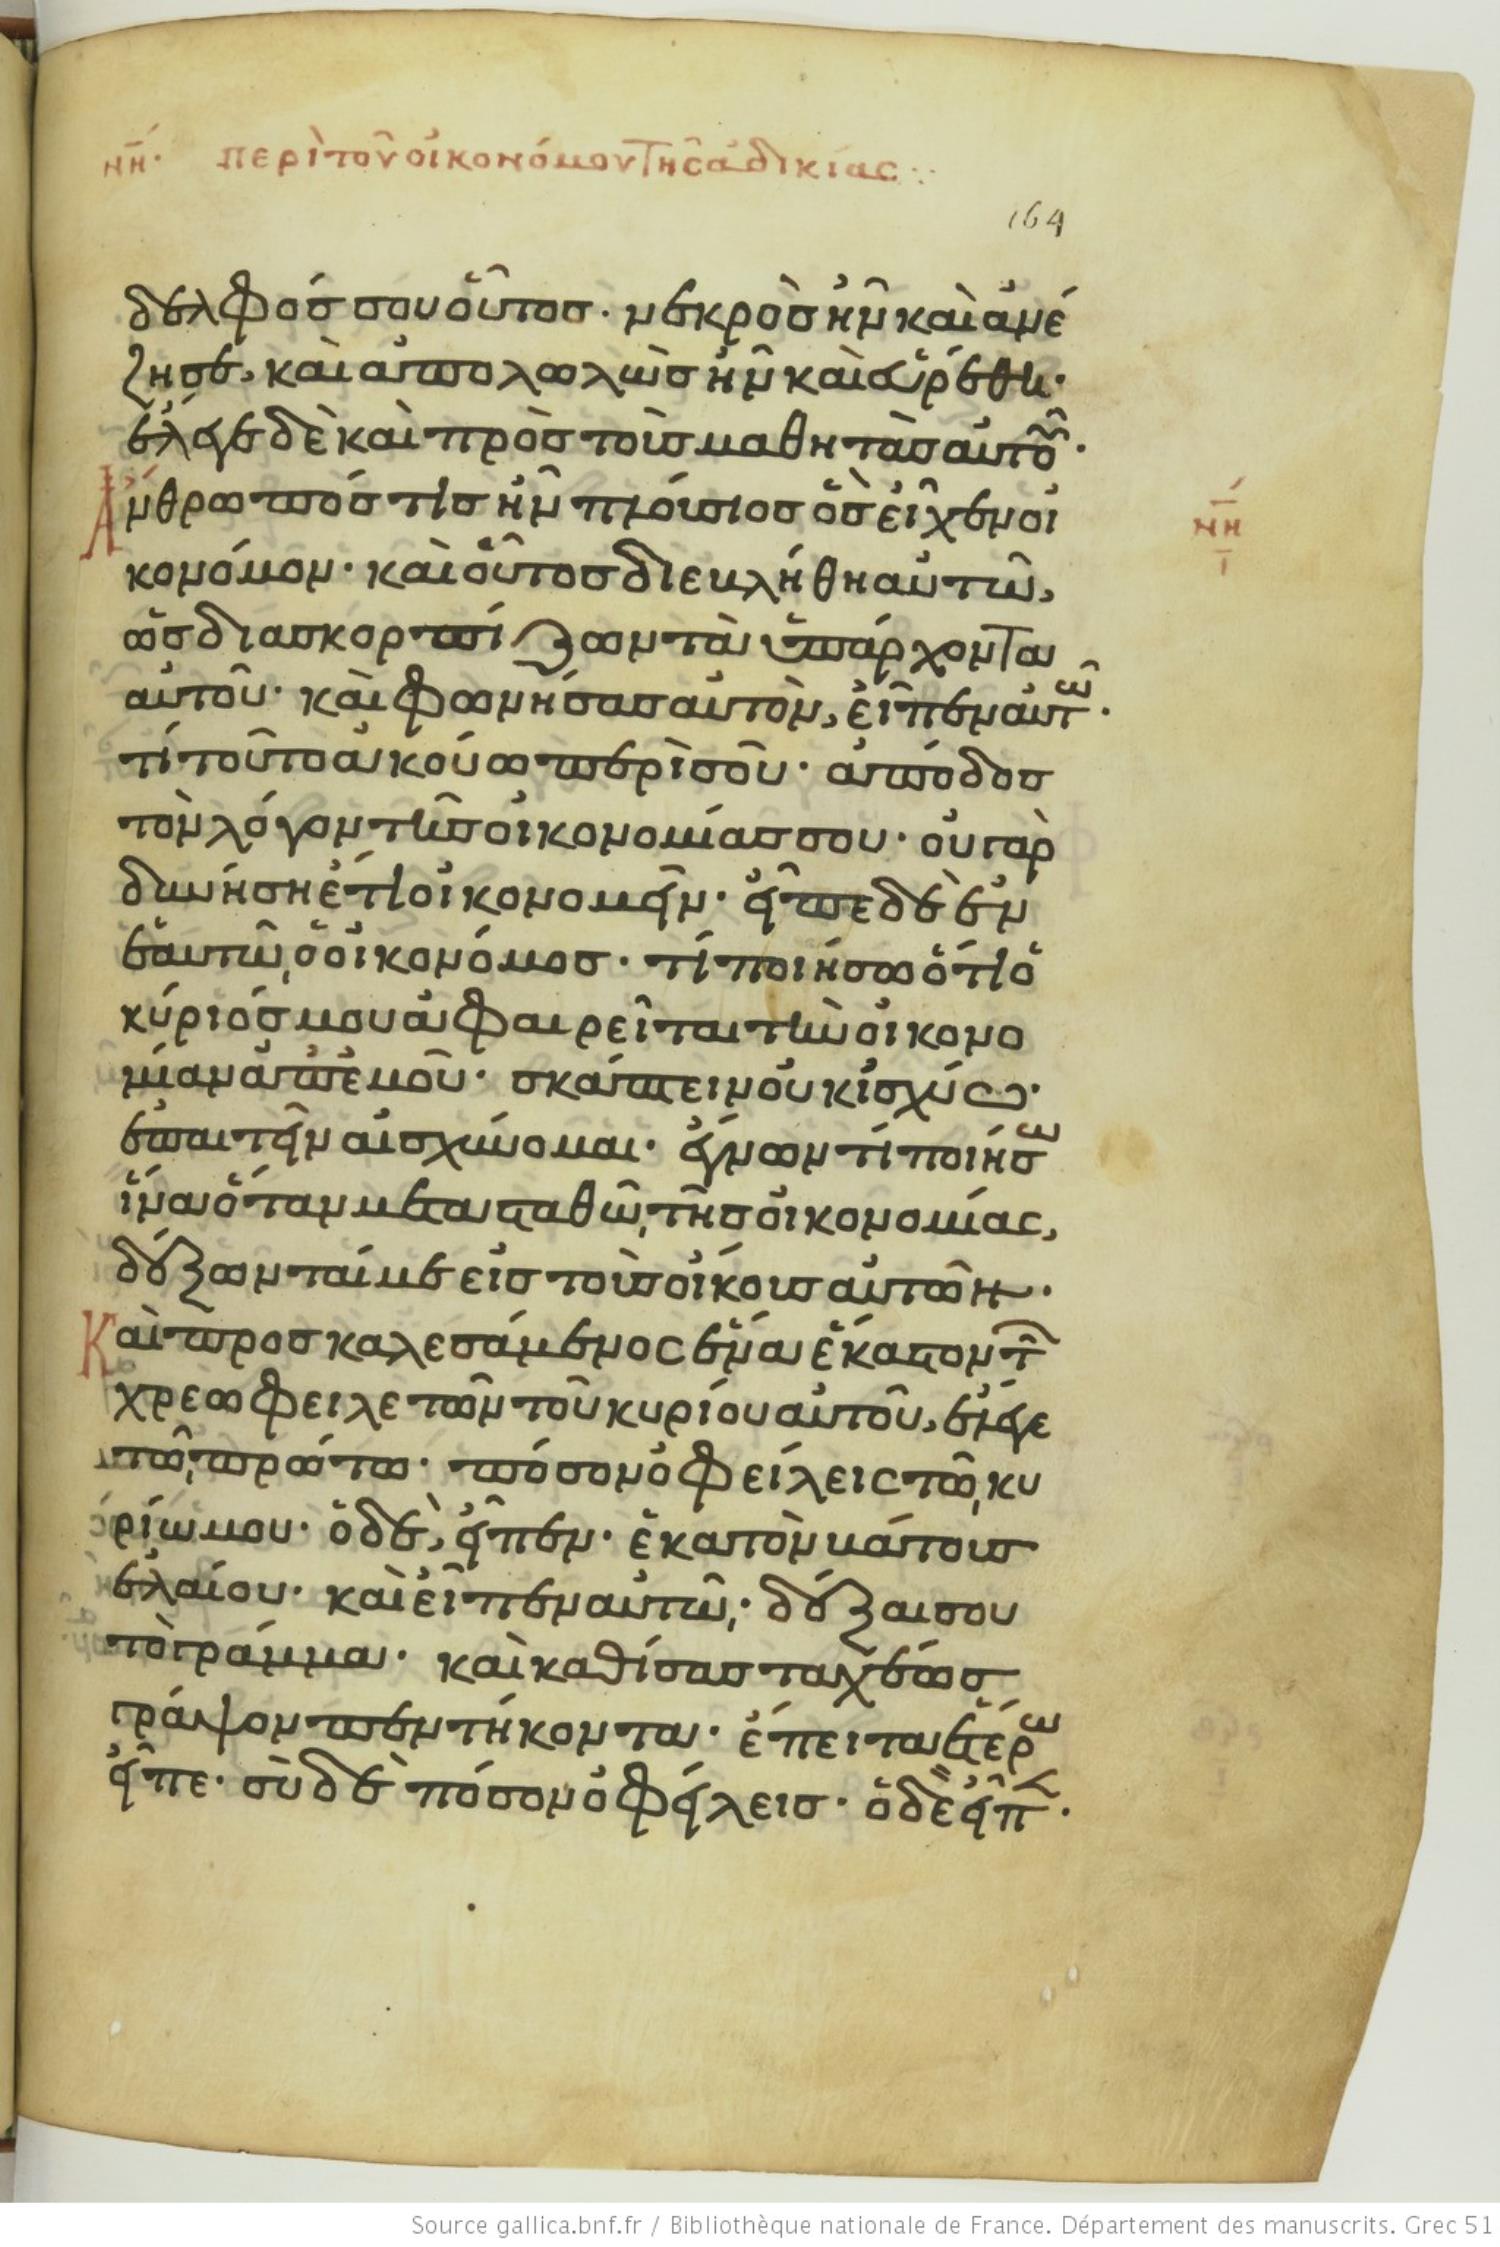 νη̄. περὶ τοῦ οἰκονόμου τῆς ἀδικίας ⁘
164
δελφός σου οὗτος· νεκρὸς ἦν καὶ ἀνέ
ζησε, καὶ ἀπολωλὼς ἦν καὶ εὑρέθη·
ἔλεγε δὲ καὶ πρὸς τοὺς μαθητὰς αὐτοῦ·
Ἄνθρωπός τις ἦν πλούσιος ὃς εἶχεν οἰ
νη̄
κονόμον· καὶ οὗτος διεβλήθη αὐτῶ,
ὡς διασκορπίζων τὰ ὑπάρχοντα
αὐτοῦ· καὶ φωνήσας αὐτὸν, εἶπεν αὐτῶ·
τί τοῦτο ἀκούω περὶ σοῦ· ἀπόδος
τὸν λόγον τῆς οἰκονομίας σου· οὐ γὰρ
δυνήση ἔτι οἰκονομεῖν· εἶπε δὲ ἐν
ἑαυτῶ, ὁ οἰκονόμος· τί ποιήσω ὅτι ὁ
κύριός μου ἀφαιρεῖται τὴν οἰκονο
μίαν ἀπ' ἐμοῦ· σκάπτειν οὐκ ἰσχύω·
ἐπαιτεῖν αἰσχύνομαι· ἔγνων τί ποιήσω
ἵνα ὅταν μετασταθῶ, τῆς οἰκονομίας,
δέξωνταί με εἰς τοὺς οἴκους αὐτῶν·
Καὶ προσκαλεσάμενος ἕνα ἕκαστον τῶν
χρεωφειλετῶν τοῦ κυρίου αὐτοῦ, ἔλεγε
τῶ πρώτω· πόσον ὀφείλεις τῶ κυ
ρίω μου· ὁ δὲ, εἶπεν· ἑκατὸν βάτους
ἐλαίου· καὶ εἶπεν αὐτῶ· δέξαι σου
τὸ γράμμα· καὶ καθίσας ταχέως
γράψον πεντήκοντα· ἔπειτα ἑτέρω
εἶπε· σὺ δὲ πόσον ὀφείλεις· ὁ δὲ εἶπεν·
Source gallica.bnf.fr / Bibliothèque nationale de France. Département des manuscrits. Grec 51